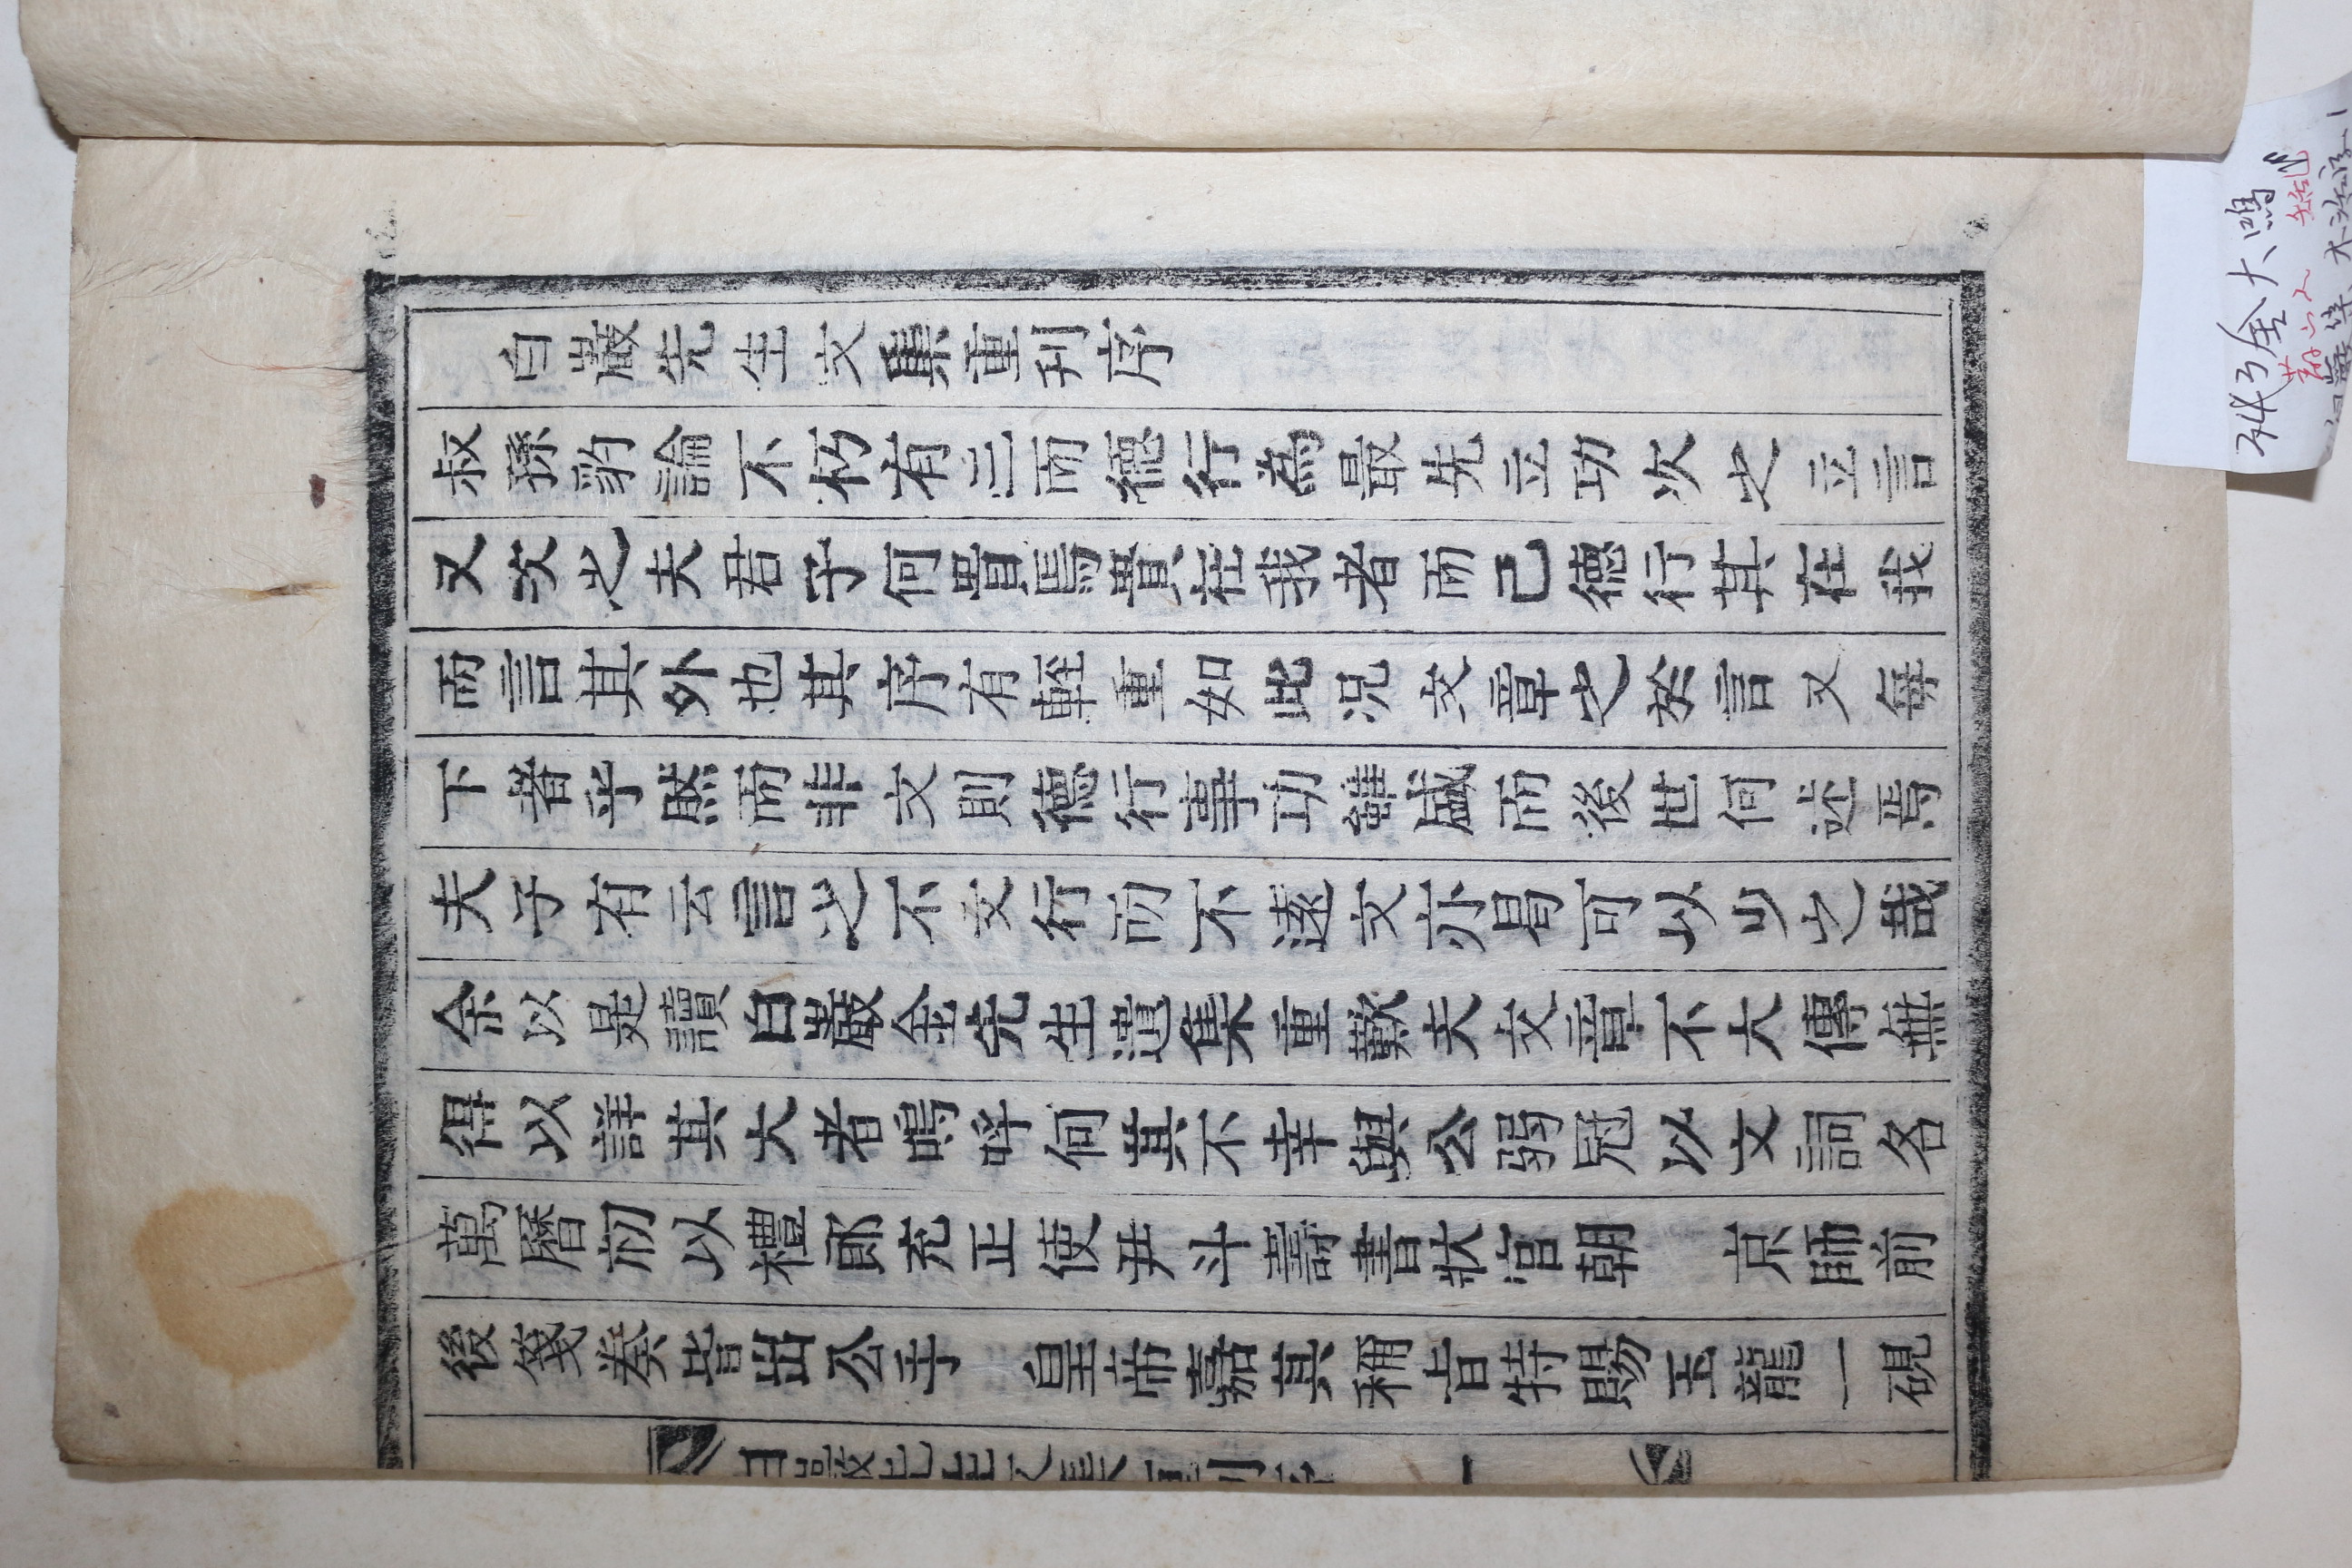 白巖先生文集重刊序
叔孫豹論不朽有三而德行為最先立功次之立言
又次之夫君子何貴焉貴在我者而已德行其在我
而言其外也其序有輕重如此況文章之於言又每
下者乎然而非文則德行事功雖盛而後世何述焉
夫子有云言之不文行而不遠文亦曷可以少之哉
余以是讀白巖金先生遺集重歎夫文章不大傳無
得以詳其大者嗚呼何其不幸與公弱冠以文詞名
萬曆初以禮郞充正使尹斗壽書狀官朝 京師前
後箋奏皆出公手 皇帝嘉其稱旨特賜玉龍一硯
白巖先生文集重刊序 一
金大鳴